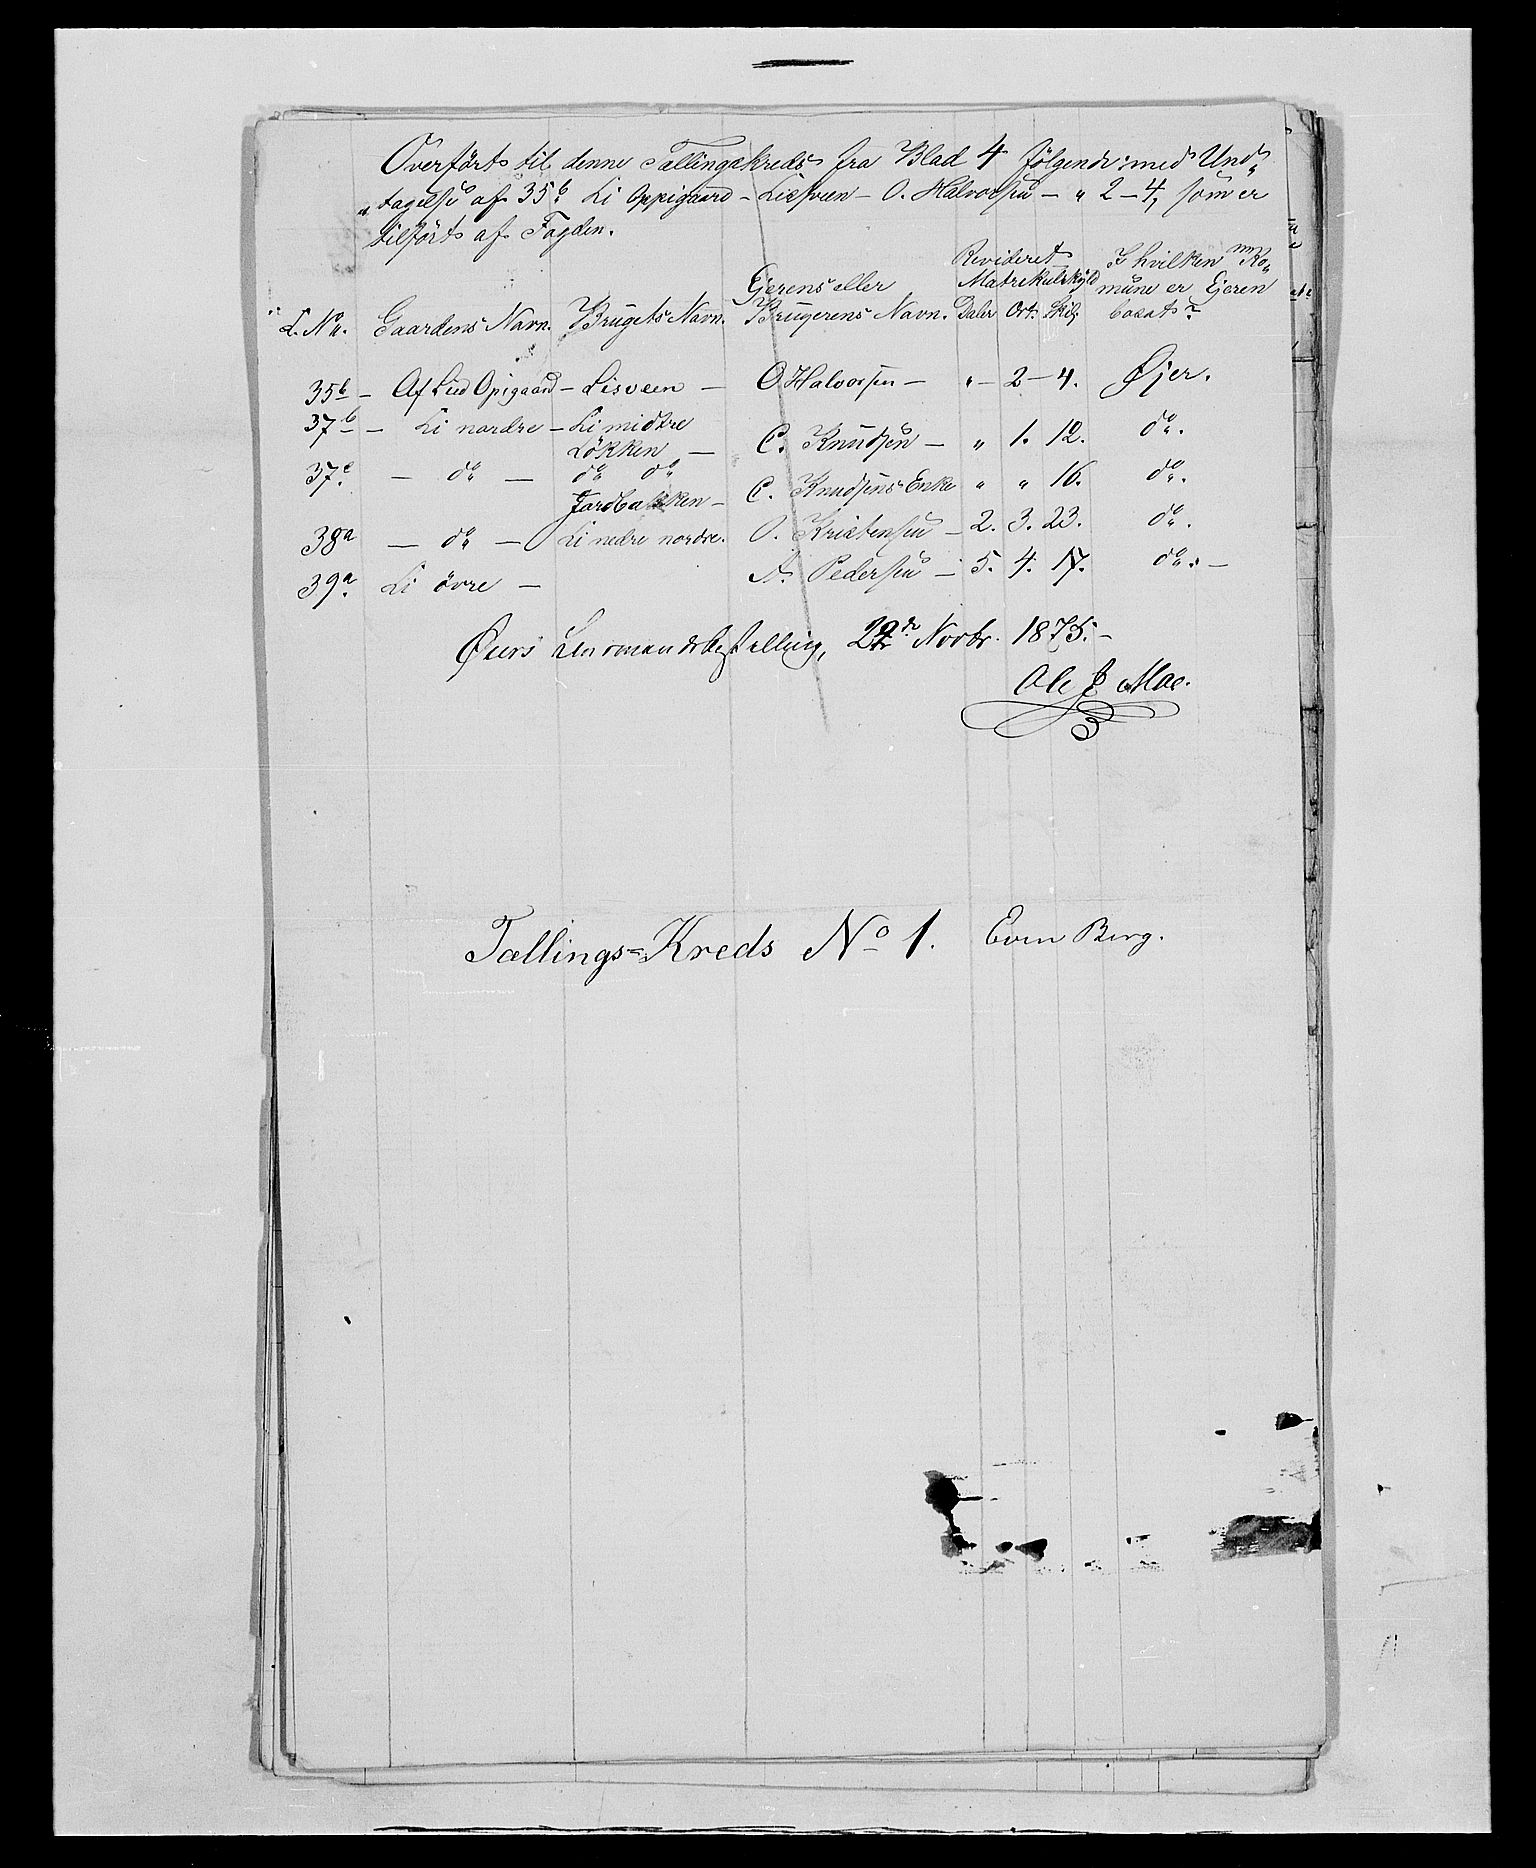 Overført til denne Tællingskreds fra Blad 4 følgende med Und„
„tagelse af 35b Li Oppigaard – Lisveen – O. Halvorsen – " 2 – 4, som er
tilført af Fogden.
L. No. Gaardens Navn. Brugets Navn. Ejerens eller Brugerens Navn. Revideret Matrekulskyld Daler Ort. Skilg I hvilken Ko„mune er Ejeren bosat?
35b – Af Lied Opigaard – Lisveen – O Halvorsen – " – 2 – 4. Øjer.
37b – Li nordre – Li midtre Løkken – C. Knudsen – " 1. 12. do.
37c. – do – do do Jordbakken – C. Knudsens Enke " " 16. do.
38a – do – Li nedre nordre. O. Kristensen – 2. 3. 23. do.
39a. Li øvre – A. Pedersen – 5. 4. 17. do. –
Øiers Lensmandsbestilling, Novbr. 1875. –
Ole J Moe.
Tællings=Kreds No 1. Even Berg.